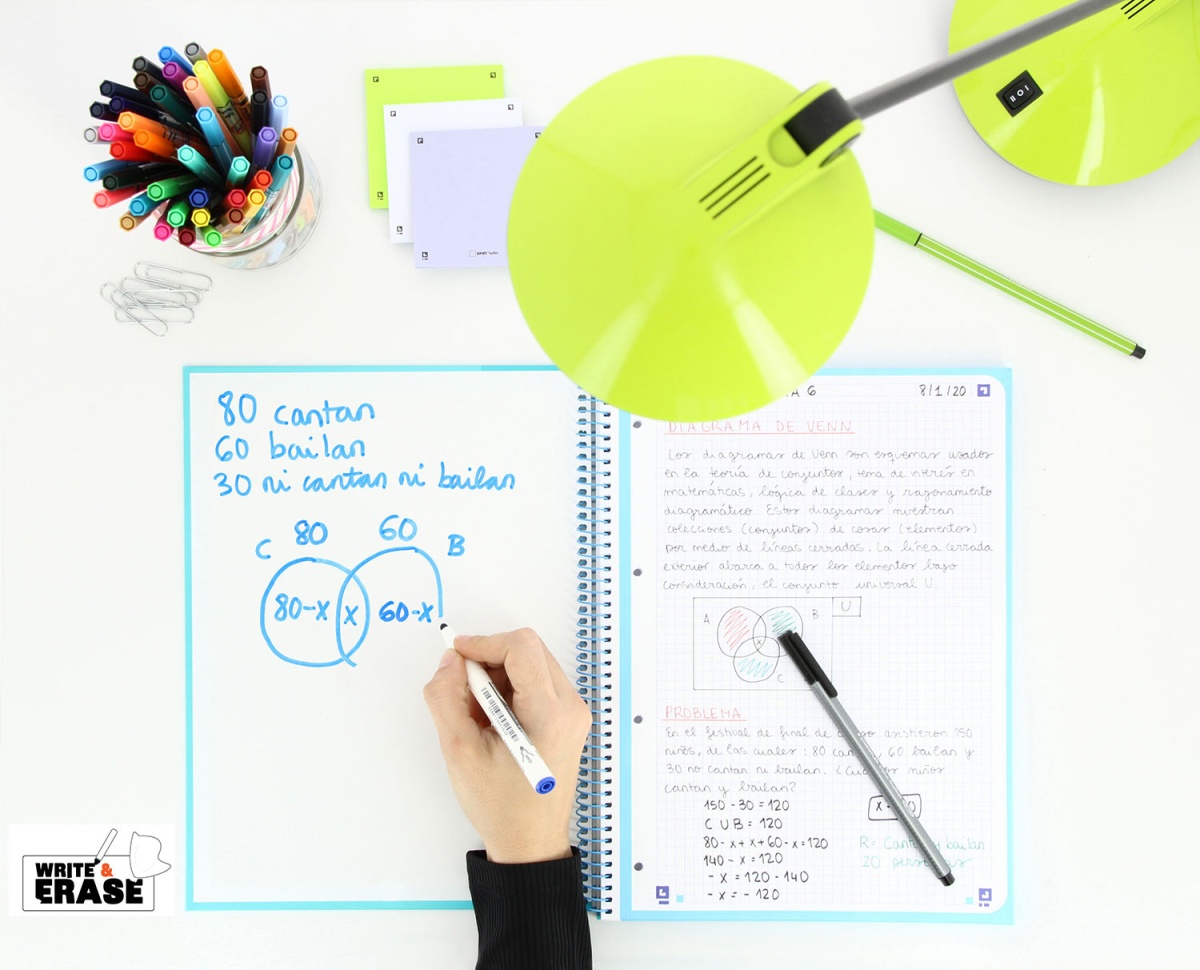 80 cantan
60 bailan
30 ni cantan ni bailan
80 60
C B
80-x x 60-x
A 6 8/1/20
DIAGRAMA DE VENN
Los diagramas de Venn son esquemas usados
en la teoría de conjuntos, tema de interés en
matemáticas, lógica de clases y razonamiento
diagramático. Estos diagramas muestran
colecciones (conjuntos) de cosas (elementos)
por medio de líneas cerradas. La línea cerrada
exterior abarca a todos los elementos bajo
consideración, el conjunto universal U.
U
A B
x
C
PROBLEMA
En el festival de final de asistieron 150
niños, de los cuales: 80 60 bailan y
30 no cantan ni bailan. niños
cantan y bailan?
150 - 30 = 120
C U B = 120
80 - x + x + 60 - x = 120
140 - x = 120
- x = 120 - 140
- x = - 120
R= y bailan
20
WRITE & ERASE